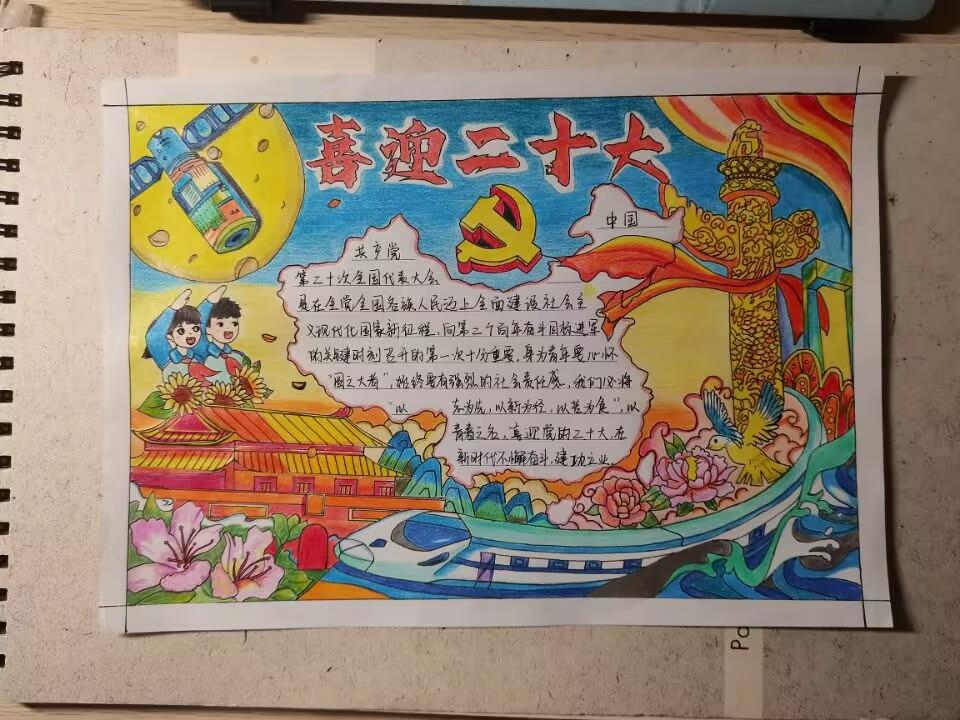 喜迎二十大
中国
共产党
第二十次全国代表大会
是在全党全国各族人民迈上全面建设社会主
义现代化国家新征程、向第二个百年奋斗目标进军
的关键时刻召开的第一次十分重要,身为青年要心怀
"国之大者",始终要有强烈的社会责任感,我们必将
"以 东为虎,以新为径,以苦为食",以
青春之名,喜迎党的二十大,在
新时代不懈奋斗、建功立业。
Po